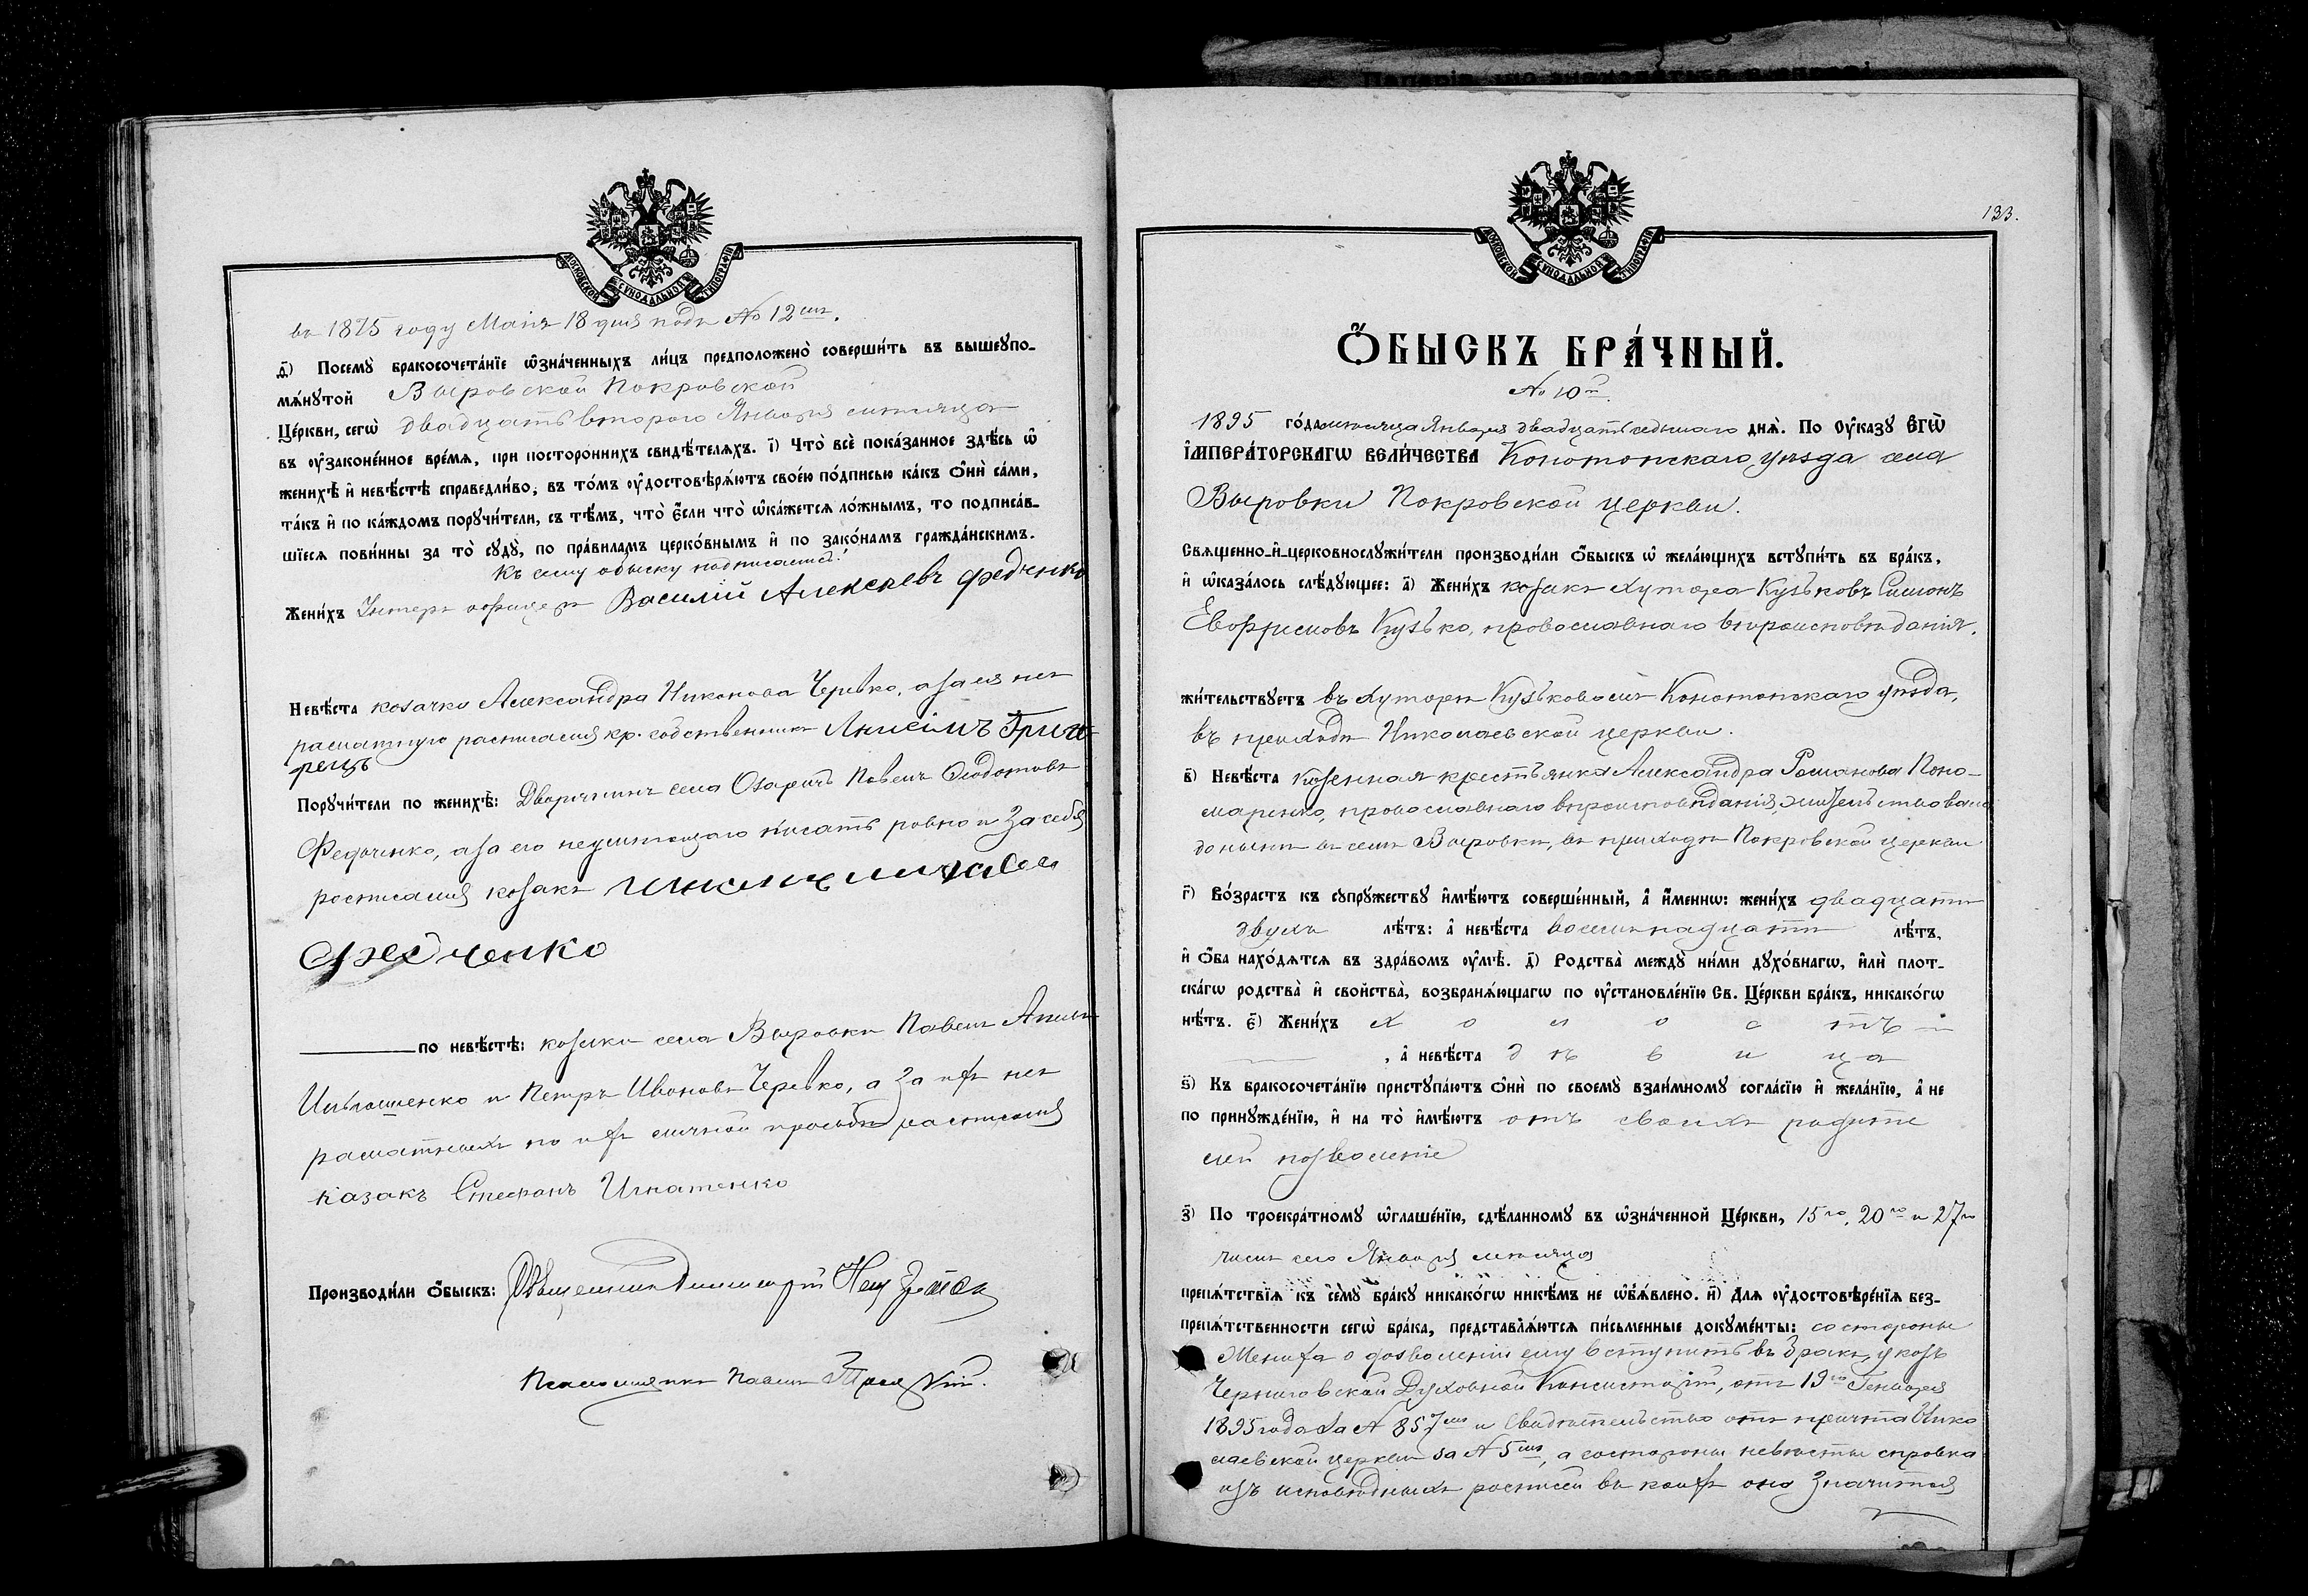 МОСКОВСКОЙ СѴНОДАЛЬНОЙ ТИПОГРАФІИ
въ 1875 году Маія 18 дня подъ № 12мъ.
д҃) Посемꙋ̀ бракосочета́нїе ѡ҆зна́ченныхъ ли́цъ предположено̀ соверши́ть въ вышеꙋпо-
мѧ́нꙋтой Выровской Покровской
Це́ркви, сегѡ̀ двадцать второго Января мѣсяца
въ ᲂу҆законе́нное вре́мѧ, при постороннихъ свидѣ́телѧхъ. і҃) Что̀ всѐ пока́занное здѣ́сь ѡ҆
женихѣ̀ и҆ невѣ́стѣ справедли́во, въ то́мъ ᲂу҆достовѣрѧ́ютъ свое́ю по́дписью ка́къ ѻ҆нѝ са́ми,
та́къ и҆ по ка́ждомъ порꙋчи́тели, съ тѣ́мъ, что̀ є҆́сли что̀ ѡ҆ка́жетсѧ ло́жнымъ, то подписа́в-
шїесѧ пови́нны за то̀ сꙋдꙋ̀, по пра́виламъ церко́внымъ и҆ по зако́намъ гражда́нскимъ.
Къ сему обыску подписались:
Жени́хъ Унтеръ офицеръ Василій Алексѣевъ Федченко
Невѣ́ста козачка Александра Никонова Черевко, а за ея не
грамотную росписался кр. собственникъ Анисімъ Григо
рецъ
Порꙋчи́тели по женихѣ̀: Дворянинъ села Озаричъ Павелъ Федотовъ
Федченко, а за его неумѣющаго писать ровно и за себя
росписался козакъ
Федченко
по невѣ́стѣ: козаки села Выровки Павелъ
Ильяшенко и Петръ Ивановъ Черевко, а за ихъ не
грамотныхъ по ихъ личной просьбѣ росписался
казакъ Стефанъ Игнатенко
Производи́ли ѻ҆́быскъ: Священникъ Димитрій
Псаломщикъ Павелъ
133.
МОСКОВСКОЙ СѴНОДАЛЬНОЙ ТИПОГРАФІИ
Ѻ҆́БЫСКЪ БРА́ЧНЫЙ.
№ 10й.
1895 го́да мѣсяца Января двадцать седьмаго днѧ̀. По Оу҆казꙋ Є҆ГѠ̀
І҆МПЕРА́ТОРСКАГѠ ВЕЛИ́ЧЕСТВА Конотопскаго уѣзда села
Выровки Покровской церкви.
Свѧщенно-и҆-церковнослꙋжи́тели производи́ли ѻ҆́быскъ ѡ҆ жела́ющихъ встꙋпи́ть въ бра́къ,
и҆ ѡ҆каза́лось слѣ́дꙋющее: а҃) Жени́хъ козакъ хутора Кузьковъ Симонъ
Евфримовъ Кузько, православнаго вѣроисповѣданія,
жи́тельствꙋетъ въ хуторѣ Кузьковомъ Конотопскаго уѣзда,
въ приходѣ Николаевской церкви.
в҃) Невѣ́ста казенная крестьянка Александра Романова Поно-
маренко, православнаго вѣроисповѣданія, жительствовала
до нынѣ въ селѣ Выровкѣ, въ приходѣ Покровской церкви
г҃) Во́зрастъ къ сꙋпрꙋ́жествꙋ и҆мѣ́ютъ соверше́нный, а҆ и҆́меннѡ: жени́хъ двадцати
двухъ лѣ́тъ: а҆ невѣ́ста восемнадцати лѣ́тъ,
и҆ ѻ҆́ба нахо́дѧтсѧ въ здра́вомъ ᲂу҆мѣ̀. д҃) Родства̀ междꙋ̀ ни́ми дꙋхо́внагѡ, и҆лѝ плот-
ска́гѡ родства̀ и҆ свойства̀, возбранѧ́ющагѡ по ᲂу҆становле́нїю Св. Це́ркви бра́къ, никако́гѡ
нѣ́тъ. є҃) Жени́хъ холостъ
, а҆ невѣ́ста дѣвица
ѕ҃) Къ бракосочета́нїю пристꙋпа́ютъ ѻ҆нѝ по своемꙋ̀ взаи́мномꙋ согла́сїю и҆ жела́нїю, а҆ не
по принꙋжде́нїю, и҆ на то̀ и҆мѣ́ютъ отъ своихъ родите
лей позволеніе
з҃) По троекра́тномꙋ ѡ҆глаше́нїю, сдѣ́ланномꙋ въ ѡ҆зна́ченной Це́ркви, 15го, 20го и 27го
чиселъ сего Января мѣсяца
препѧ́тствїѧ къ семꙋ̀ бра́кꙋ никако́гѡ никѣ́мъ не ѡ҆б̾ѧ́влено. и҃) Длѧ ᲂу҆достовѣре́нїѧ без-
препѧ́тственности сегѡ̀ бра́ка, представлѧ́ютсѧ пи́сьменные докꙋме́нты: со стороны
Жениха о дозволеніи ему вступить въ бракъ, указъ
Черниговской Духовной Консисторіи, отъ 19го Генваря
1895 года за № 857мъ и Свидѣтельство отъ причта Нико
лаевской церкви за № 5мъ, а со стороны невѣсты справка
изъ исповѣдныхъ росписей въ коихъ она значится